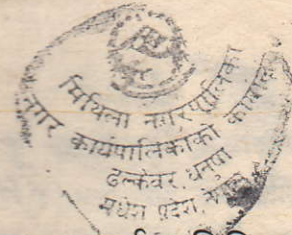 मिथिला नगरपालिका
नगर कार्यपालिकाको कार्यालय
ढल्केवर, धनुषा
मधेश प्रदेश, नेपाल